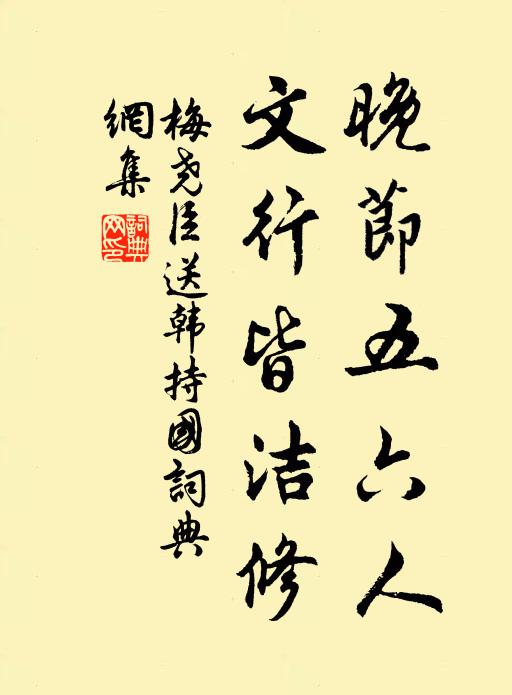 晚節五六人
文行皆洁修
梅尧臣送韩持國詞典
網集
詞典
网印